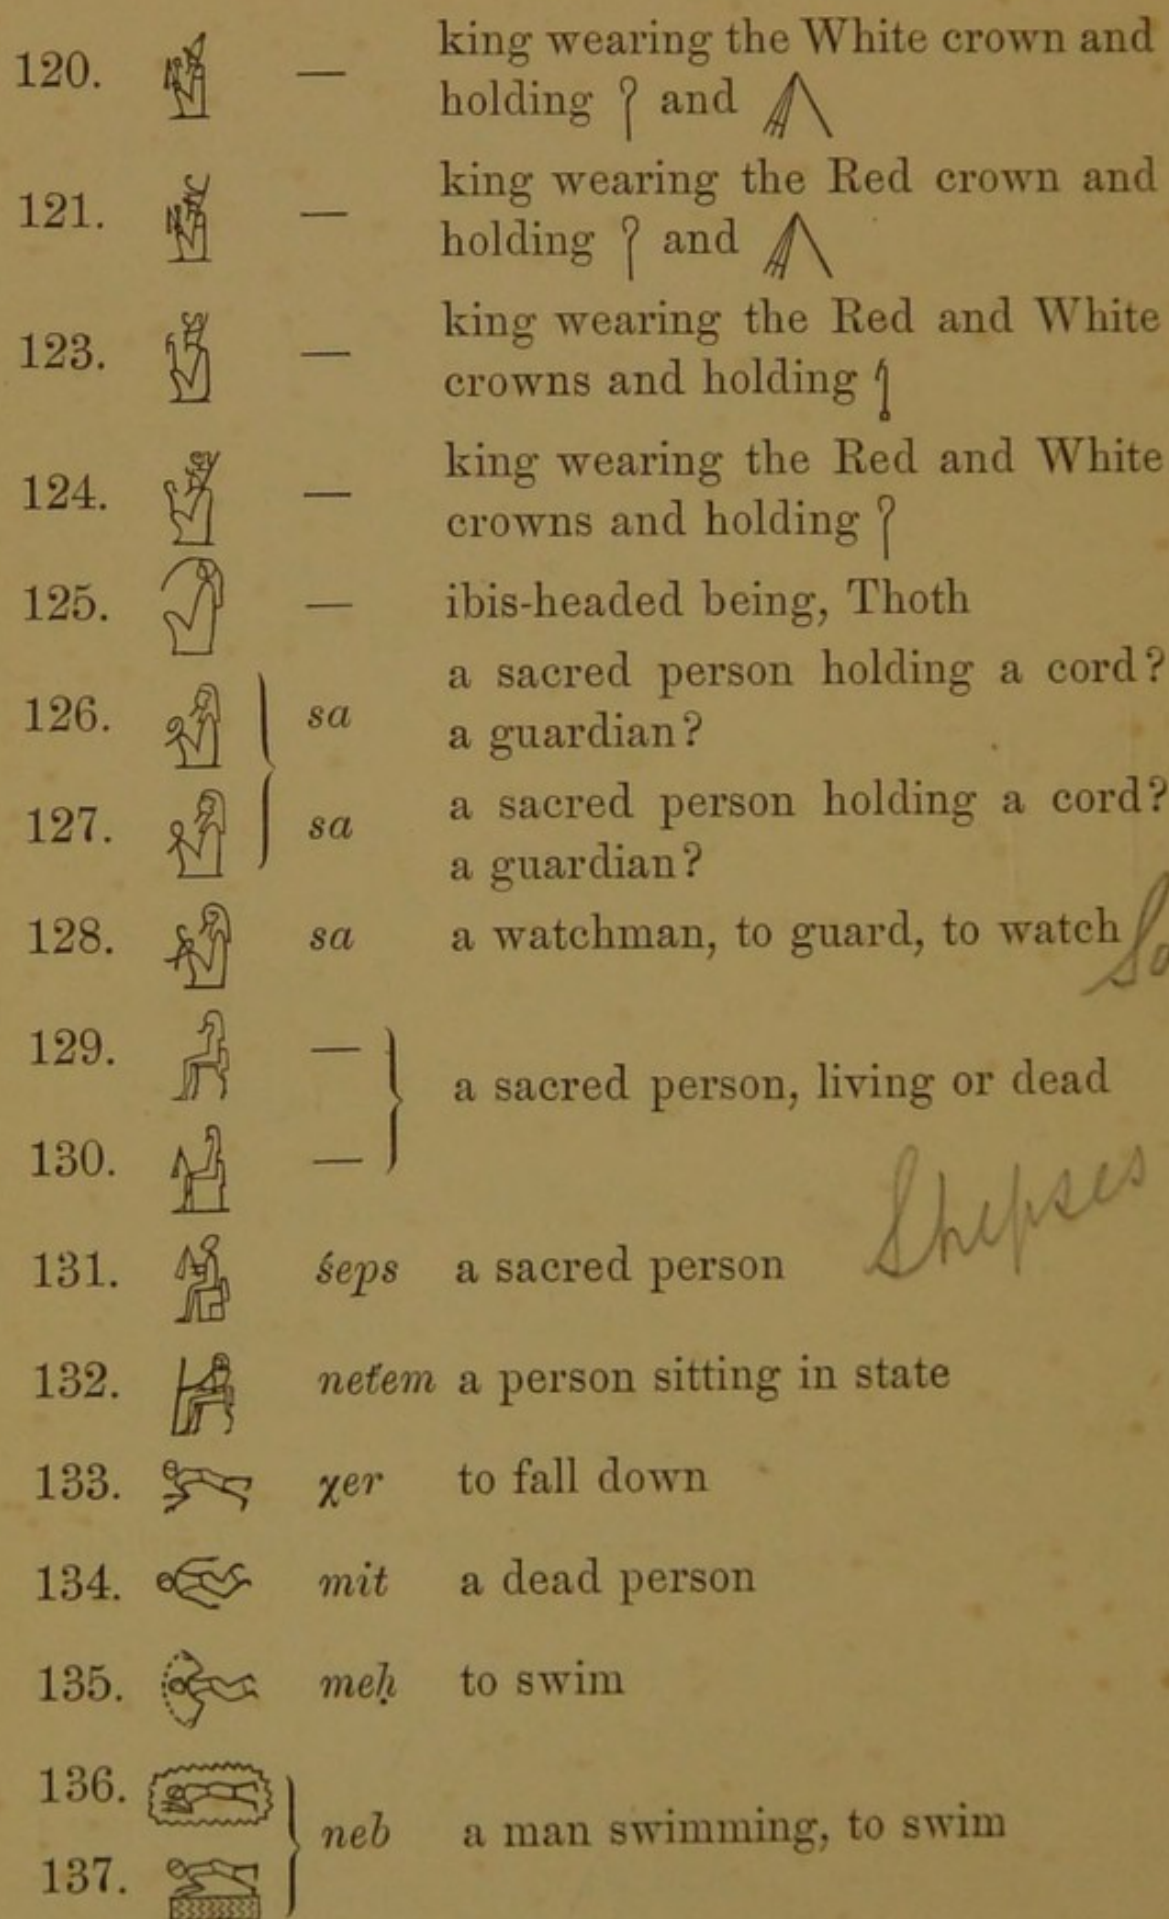 120. — king wearing the White crown and
holding and
121. — king wearing the Red crown and
holding and
123. — king wearing the Red and White
crowns and holding
124. — king wearing the Red and White
crowns and holding
125. — ibis-headed being, Thoth
126. sa a sacred person holding a cord?
a guardian?
127. sa a sacred person holding a cord?
a guardian?
128. sa a watchman, to guard, to watch
129. —
a sacred person, living or dead
130. —
Shepses
131. śeps a sacred person
132. netʼem a person sitting in state
133. χer to fall down
134. mit a dead person
135. meḥ to swim
136.
neb a man swimming, to swim
137.